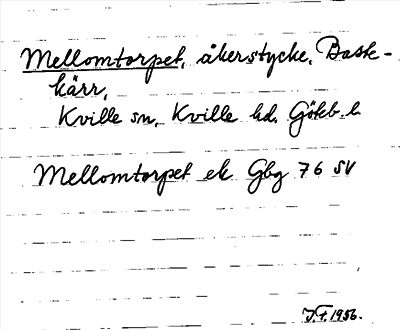 Mellomtorpet, åkerstycke, Bask-
kärr,
Kville sn, Kville hd. Göteb. l.
Mellomtorpet ek Gbg 76 SV
1956.